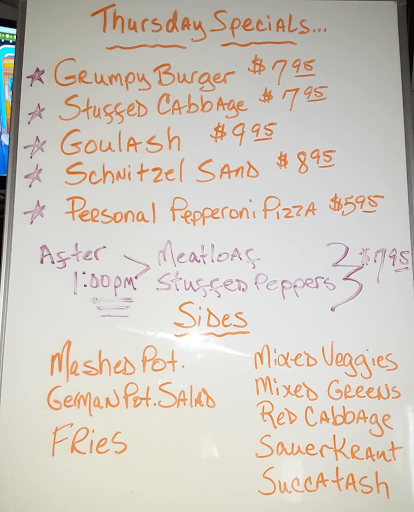 Thursday Specials...
Grumpy Burger $7.95
Stuffed Cabbage $7.95
Goulash $9.95
Schnitzel Sand $8.95
Personal Pepperoni Pizza $5.95
After 1:00pm > Meatloaf
Stuffed Peppers } $7.95
Sides
Mashed Pot.
German Pot. Salad
Fries
Mixed Veggies
Mixed Greens
Red Cabbage
Sauerkraut
Succatash